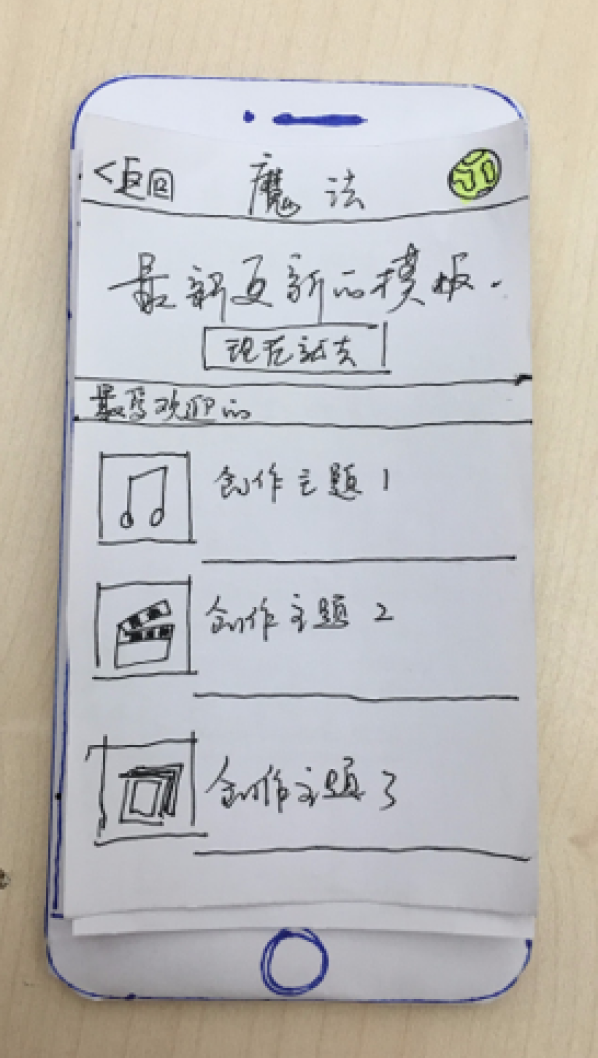 <返回 魔法
最新更新的模板.
现在就去
最受欢迎的
创作主题1
创作主题2
创作主题3